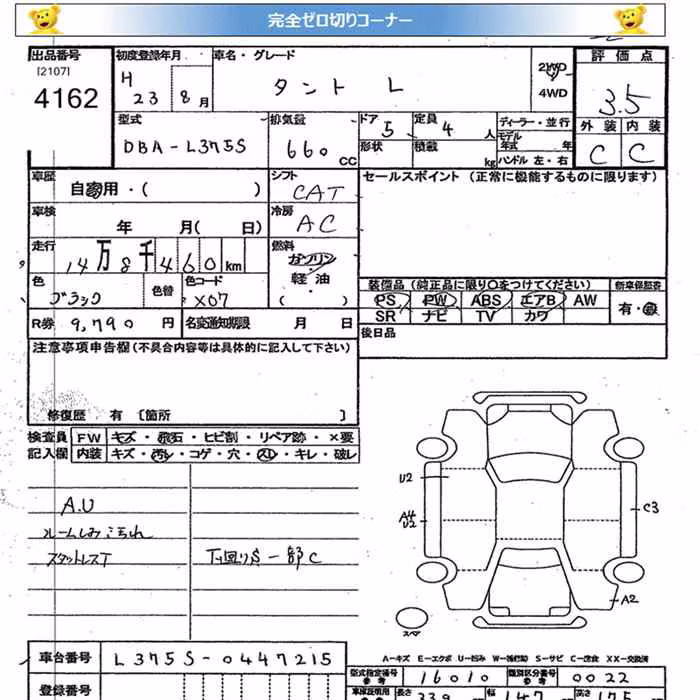 完全ゼロ切りコーナー
出品番号 初度登録年月 車名・グレード 評価点
[2107] H 2WD
4162 23 8月 タント L 4WD 3.5
型式 排気量 ドア 定員 ディーラー・並行 外装 内装
DBA-L375S 660 CC 5 4 人 モデル年式 年 C C
形状 積載 kg ハンドル 左・右
車歴 自家用・( ) シフト CAT セールスポイント (正常に機能するものに限ります)
車検 年 月( 日) 冷房 AC
走行 14万8千460km 燃料 ガソリン
軽油
( )
色 ブラック 色替 色コード X07 装備品 (純正品に限り○をつけてください) 新車保証書
PS PW ABS エアB AW 有・無
SR ナビ TV カワ
R券 9,790 円 名変通知期限 月 日 後日品
注意事項申告欄 (不具合内容等は具体的に記入して下さい)
修復歴 有 [箇所 ]
検査員 FW キズ・飛石・ヒビ割・リペア跡・×要
記入欄 内装 キズ・汚レ・コゲ・穴・スレ・キレ・破レ
A.U
スタットレスT 下回りS一部C
U2
A4
U2
C3
A2
スペア
車台番号 L375S-0447215
A-キズ E-エクボ S-サビ C-腐食 XX-交換済
登録番号 型式指定番号 16010 類別区分番号 0022
長さ 339 幅 147 高さ 175